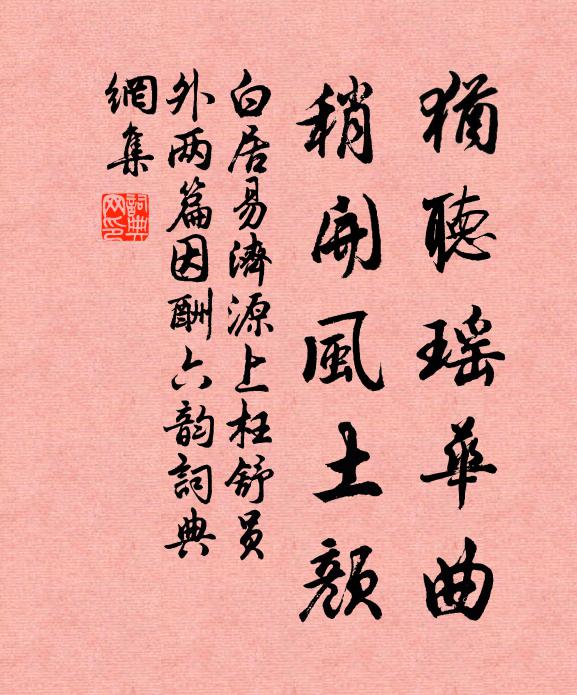 猶聽瑶華曲
稍開風土顏
白居易濟源上枉舒员
外两篇因酬六韵詞典
網集
詞典
网印